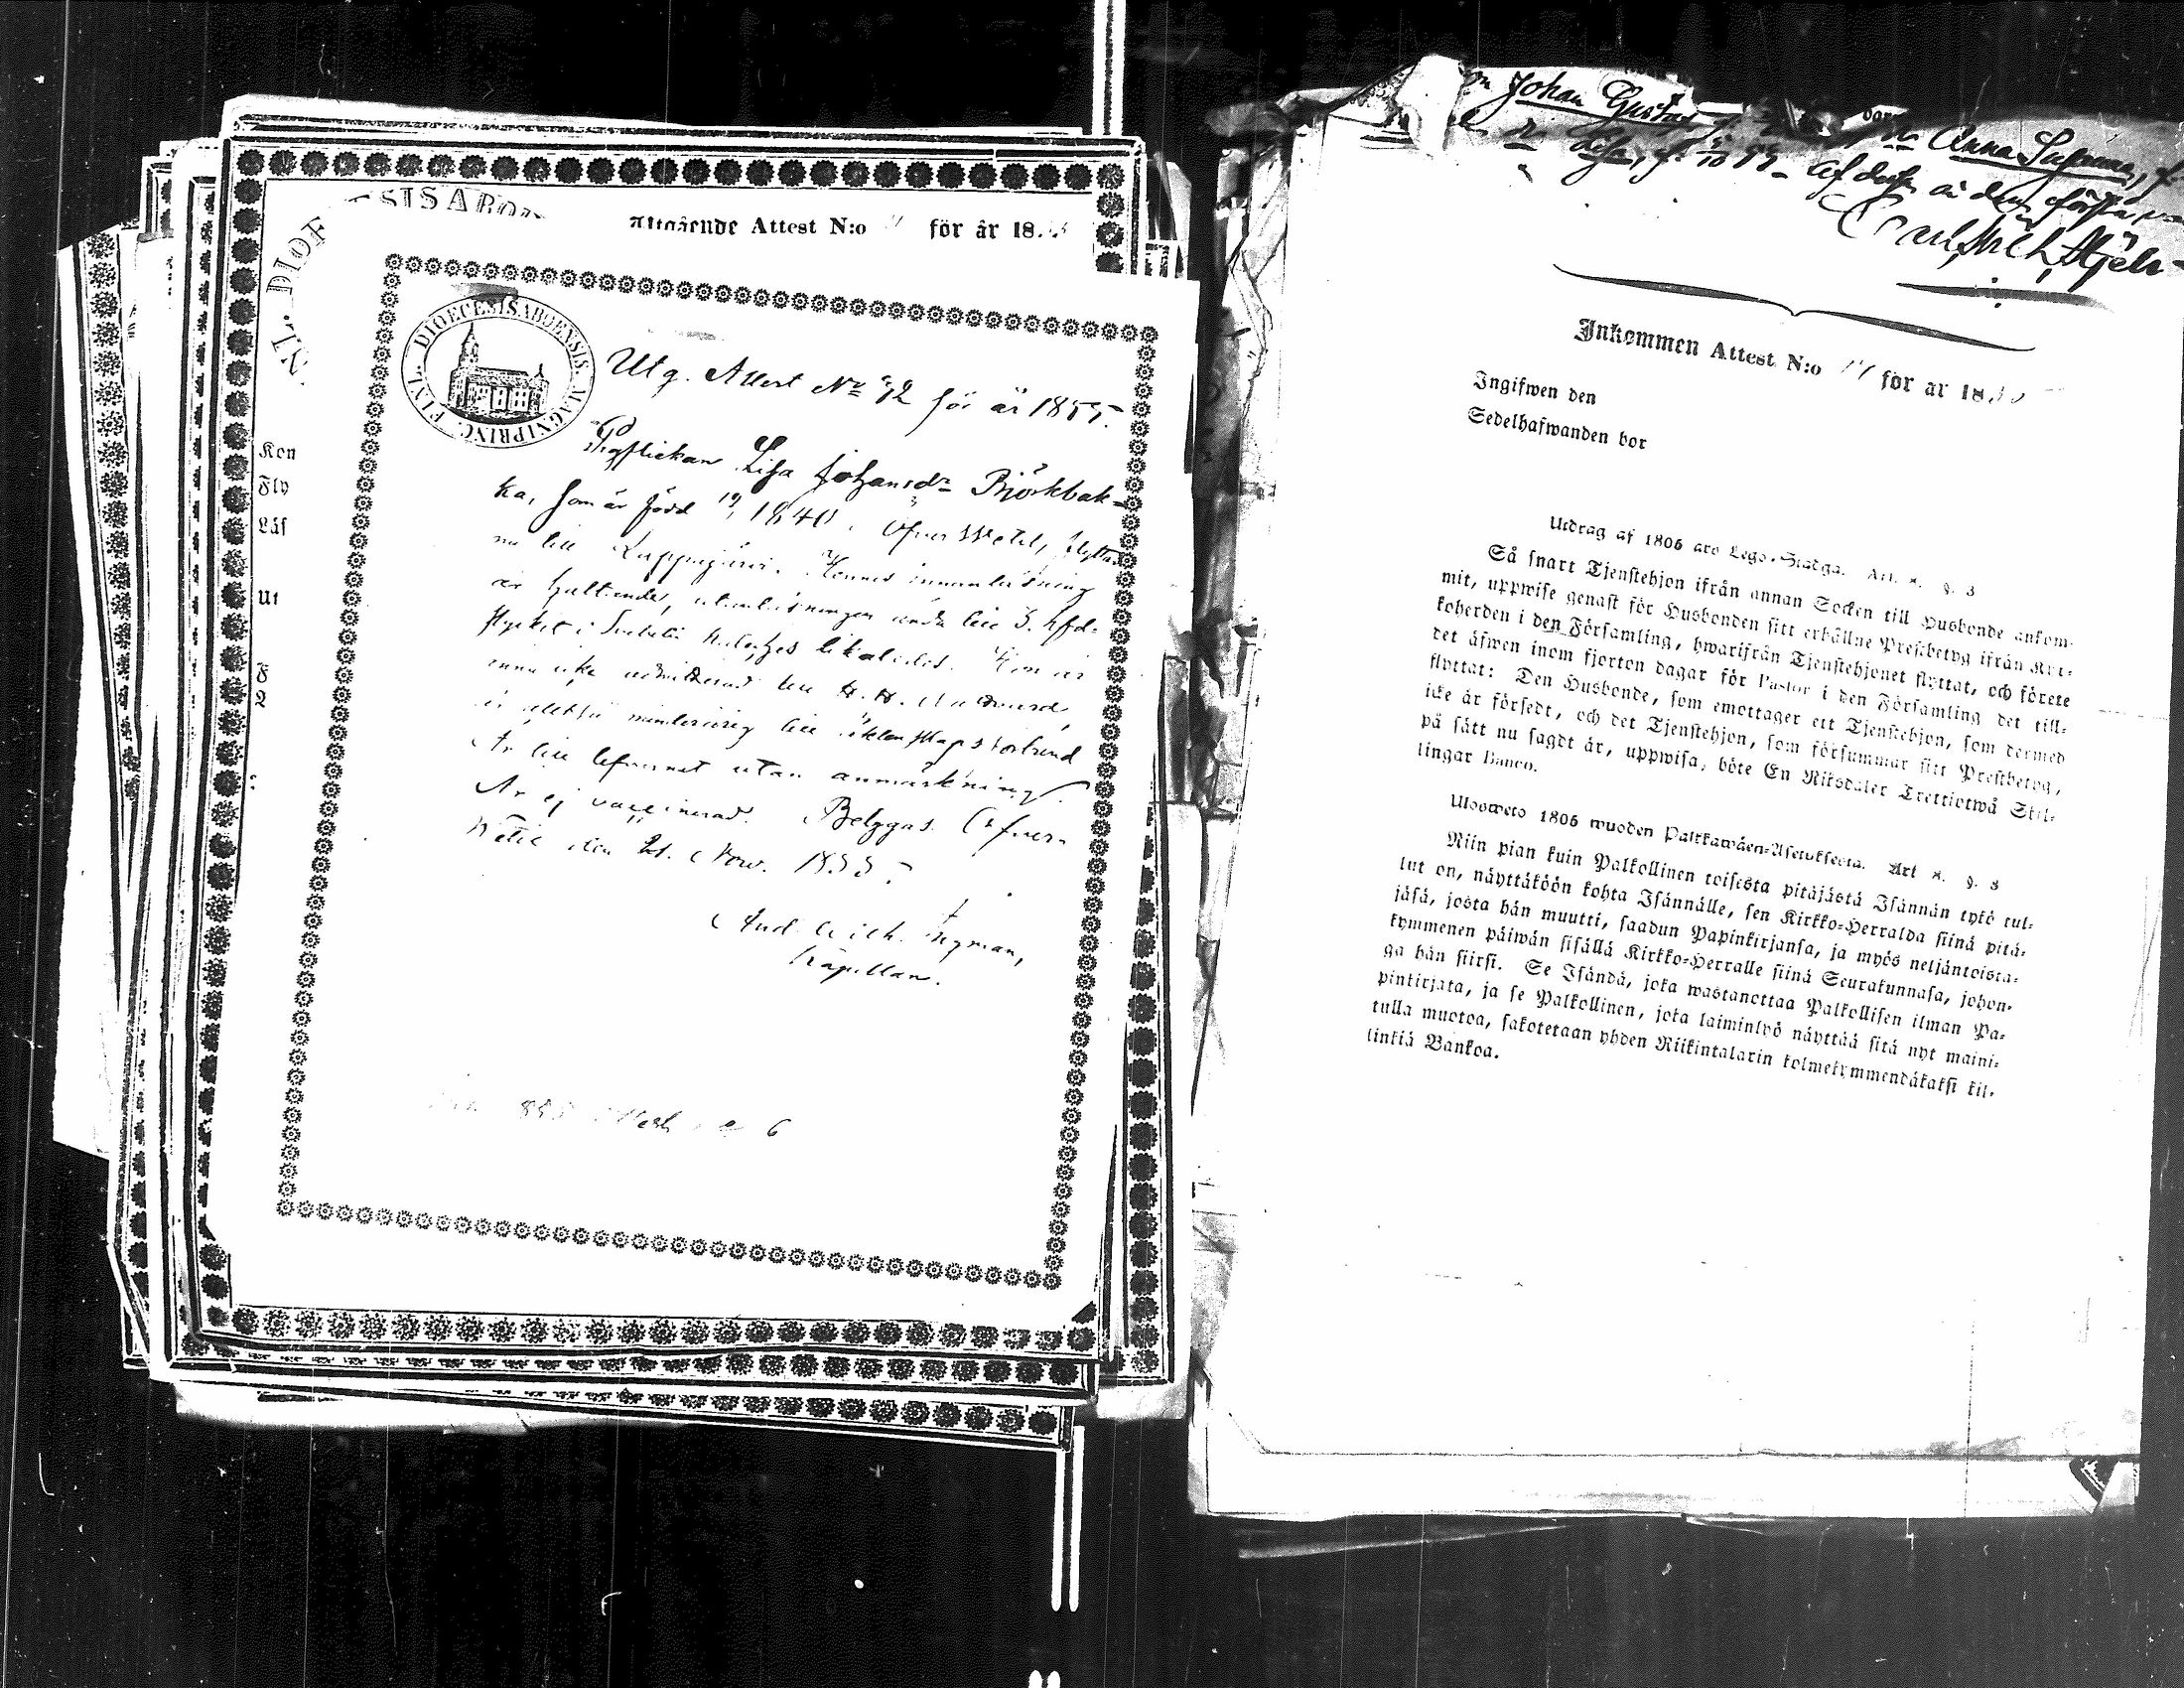 Utgående Attest N:o för år 18
DIOECESIS ABOENSIS. MAGNI PRINC. FINL.
Utg. Attest No 92 för år 1855.
Pigflickan Lisa Johansdr Björkbak-
ka, som är född 1840 i Öfver Wetil, flyttar
nu till Kuppisjärvi. Hennes innanläsning
är, utanläsningen till 3. hfd-
stycket i Svebelii likaledes. Hon är
ännu icke admitterad till H. H. Nattvard,
är alltså minderårig till äktenskapsförbund
Är till lefvernet utan anmärkning.
Är ej vaccinerad. Betygas. Öfver-
Wetil den 21. Nov. 1855.
And. Wilh. Ingman,
Kapellan.
Kon
Fly
Läs
Ut
F
2
Johan Gustaf Anna Susanna, f.
Lisa, f. af den första
Inkommen Attest N:o för år 18
Ingifwen den
Sedelhafwanden bor
Utdrag af 1805 års Lego-Stadga. Art. 8. §. 3
Så snart Tjenstehjon ifrån annan Socken till Husbonde ankom-
mit, uppwise genast för Husbonden sitt erhållne Prestbetyg ifrån Kyr-
koherden i den Församling, hwarifrån Tjenstehjonet flyttat, och förete
det äfwen inom fjorton dagar för Pastor i den Församling det till-
flyttat: Den Husbonde, som emottager ett Tjenstehjon, som dermed
icke är försedt, och det Tjenstehjon, som försummar sitt Prestbetyg,
på sätt nu sagdt är, uppwisa, böte En Riksdaler Trettiotwå Skil-
lingar Banco.
Ulosweto 1805 wuoden Palkkawäen-Asetuksesta. Art 8. §. 3
Niin pian kuin Palkollinen toisesta pitäjästä Isännän tykö tul-
lut on, näyttäköön kohta Isännälle, sen Kirkko-Herralda siinä pitä-
jäsä, josta hän muutti, saadun Papinkirjansa, ja myös neljäntoista-
kymmenen päiwän sisällä Kirkko-Herralle siinä Seurakunnasa, johon-
ga hän siirsi. Se Isändä, joka wastanottaa Palkollisen ilman Pa-
pinkirjata, ja se Palkollinen, joka laiminlyö näyttää sitä nyt maini-
tulla muotoa, sakotetaan yhden Riikintalarin kolmekymmendäkaksi kil-
linkiä Bankoa.